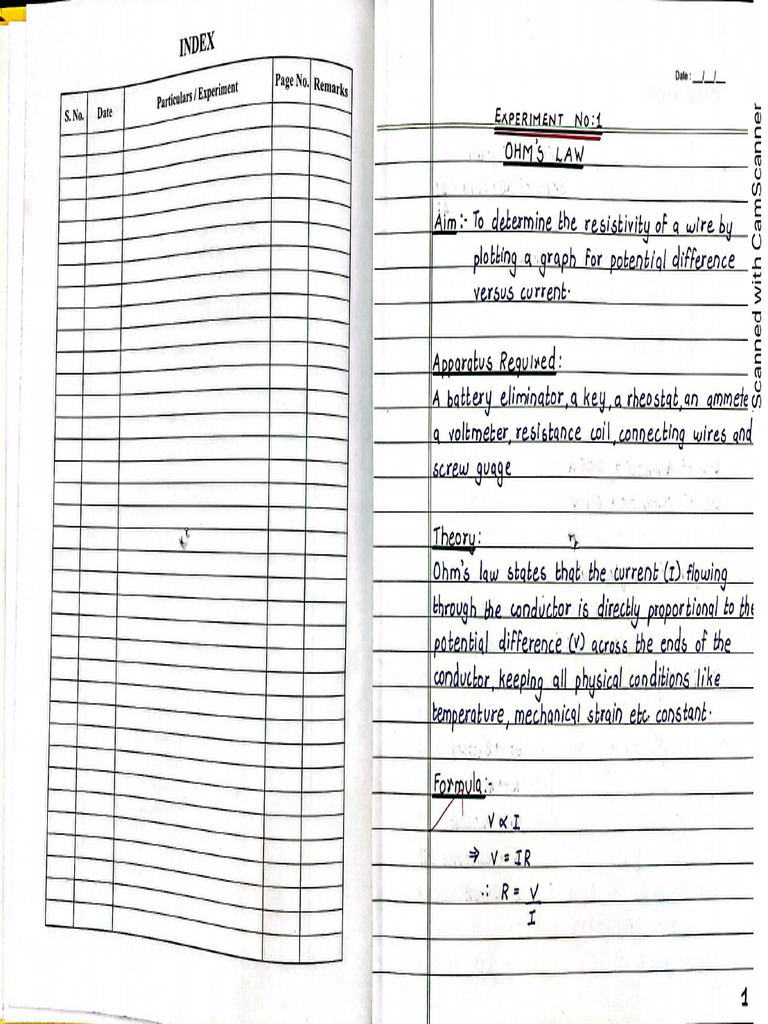 INDEX
S. No. Date Particulars / Experiment Page No. Remarks
Date : __/__/__
EXPERIMENT NO:1
OHM'S LAW
Aim:- To determine the resistivity of a wire by
plotting a graph for potential difference
versus current.
Apparatus Required:
A battery eliminator, a key, a rheostat, an ammete
a voltmeter, resistance coil, connecting wires and
screw guage
Theory:
Ohm's law states that the current (I) flowing
through the conductor is directly proportional to the
potential difference (V) across the ends of the
conductor, keeping all physical conditions like
temperature, mechanical strain etc. constant.
Formula:-
V ∝ I
⇒ V = IR
∴ R = V
I
1
Scanned with CamScanner